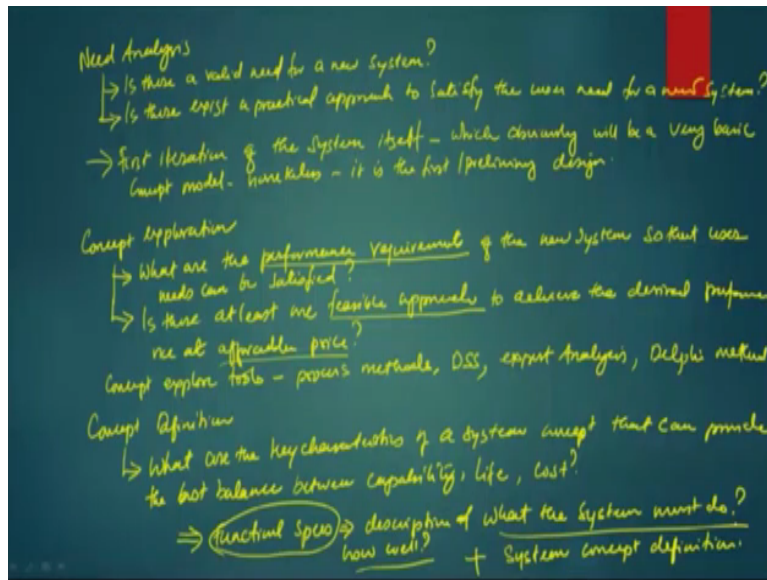 Need Analysis
→ Is there a valid need for a new system?
→ Is there exist a practical approach to satisfy the user need for a new system?
→ first iteration of the system itself - which obviously will be a very basic
Concept model - nonetheless - it is the first / preliminary design.
Concept exploration
→ What are the performance requirement of the new system so that user
needs can be satisfied?
→ Is there at least one feasible approach to achieve the desired performa
nce at affordable price?
Concept explore tools - process methods, DSS, expert Analysis, Delphi method
Concept Definition
→ What are the key characteristics of a system concept that can provide
the best balance between capability, life, cost?
⇒ functional specs ⇒ description of what the system must do?
how well? + System concept definition.